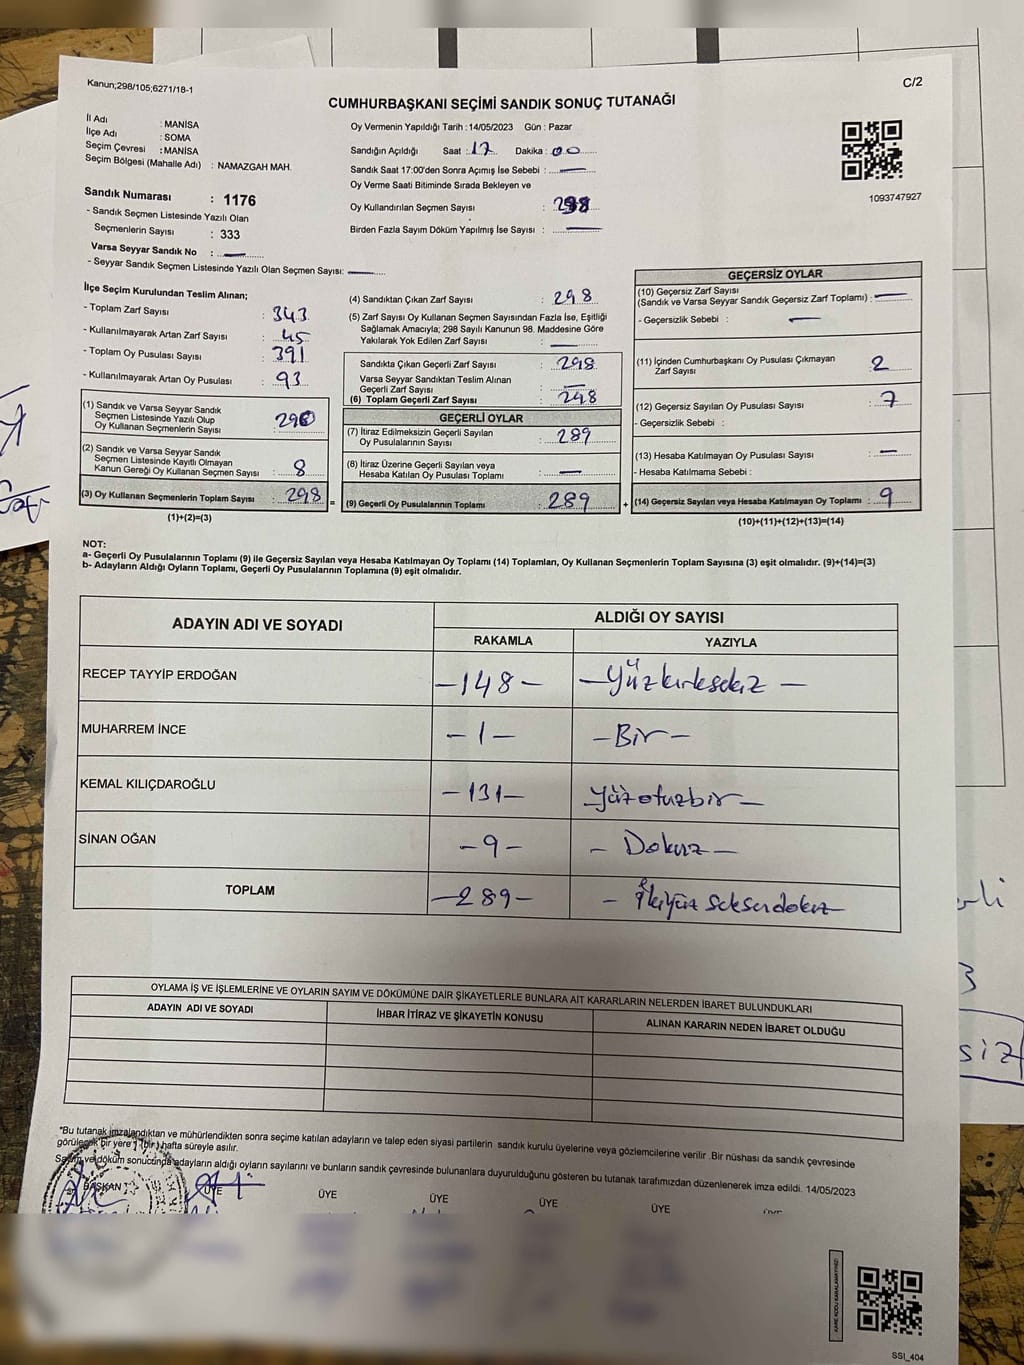 Kanun;298/105;6271/18-1
C/2
CUMHURBAŞKANI SEÇİMİ SANDIK SONUÇ TUTANAĞI
İl Adı : MANİSA
İlçe Adı : SOMA
Seçim Çevresi : MANİSA
Seçim Bölgesi (Mahalle Adı) : NAMAZGAH MAH.
Oy Vermenin Yapıldığı Tarih :14/05/2023 Gün : Pazar
Sandığın Açıldığı Saat : 17 Dakika : 00
Sandık Saat 17:00'den Sonra Açımış İse Sebebi : —
Oy Verme Saati Bitiminde Sırada Bekleyen ve
Oy Kullandırılan Seçmen Sayısı : 298
Birden Fazla Sayım Döküm Yapılmış İse Sayısı : —
1093747927
Sandık Numarası : 1176
- Sandık Seçmen Listesinde Yazılı Olan
Seçmenlerin Sayısı : 333
Varsa Seyyar Sandık No : —
- Seyyar Sandık Seçmen Listesinde Yazılı Olan Seçmen Sayısı: —
İlçe Seçim Kurulundan Teslim Alınan;
- Toplam Zarf Sayısı : 343
- Kullanılmayarak Artan Zarf Sayısı : 45
- Toplam Oy Pusulası Sayısı : 391
- Kullanılmayarak Artan Oy Pusulası : 93
(1) Sandık ve Varsa Seyyar Sandık
Seçmen Listesinde Yazılı Olup
Oy Kullanan Seçmenlerin Sayısı : 290
(2) Sandık ve Varsa Seyyar Sandık
Seçmen Listesinde Kayıtlı Olmayan
Kanun Gereği Oy Kullanan Seçmen Sayısı : 8
(3) Oy Kullanan Seçmenlerin Toplam Sayısı : 298
(1)+(2)=(3)
(4) Sandıktan Çıkan Zarf Sayısı : 298
(5) Zarf Sayısı Oy Kullanan Seçmen Sayısından Fazla İse, Eşitliği
Sağlamak Amacıyla; 298 Sayılı Kanunun 98. Maddesine Göre
Yakılarak Yok Edilen Zarf Sayısı : —
Sandıkta Çıkan Geçerli Zarf Sayısı : 298
Varsa Seyyar Sandıktan Teslim Alınan
Geçerli Zarf Sayısı : —
(6) Toplam Geçerli Zarf Sayısı : 298
GEÇERLİ OYLAR
(7) İtiraz Edilmeksizin Geçerli Sayılan
Oy Pusulalarının Sayısı : 289
(8) İtiraz Üzerine Geçerli Sayılan veya
Hesaba Katılan Oy Pusulası Toplamı : —
= (9) Geçerli Oy Pusulalarının Toplamı : 289 +
GEÇERSİZ OYLAR
(10) Geçersiz Zarf Sayısı
(Sandık ve Varsa Seyyar Sandık Geçersiz Zarf Toplamı) : —
- Geçersizlik Sebebi : —
(11) İçinden Cumhurbaşkanı Oy Pusulası Çıkmayan
Zarf Sayısı : 2
(12) Geçersiz Sayılan Oy Pusulası Sayısı : 7
- Geçersizlik Sebebi :
(13) Hesaba Katılmayan Oy Pusulası Sayısı : —
- Hesaba Katılmama Sebebi :
(14) Geçersiz Sayılan veya Hesaba Katılmayan Oy Toplamı : 9
(10)+(11)+(12)+(13)=(14)
NOT:
a- Geçerli Oy Pusulalarının Toplamı (9) ile Geçersiz Sayılan veya Hesaba Katılmayan Oy Toplamı (14) Toplamları, Oy Kullanan Seçmenlerin Toplam Sayısına (3) eşit olmalıdır. (9)+(14)=(3)
b- Adayların Aldığı Oyların Toplamı, Geçerli Oy Pusulalarının Toplamına (9) eşit olmalıdır.
ADAYIN ADI VE SOYADI ALDIĞI OY SAYISI
RAKAMLA YAZIYLA
RECEP TAYYİP ERDOĞAN -148- -Yüzkırksekiz-
MUHARREM İNCE -1- -Bir-
KEMAL KILIÇDAROĞLU -131- Yüzotuzbir-
SİNAN OĞAN -9- -Dokuz-
TOPLAM -289- -İkiyüz seksendokuz
OYLAMA İŞ VE İŞLEMLERİNE VE OYLARIN SAYIM VE DÖKÜMÜNE DAİR ŞİKAYETLERLE BUNLARA AİT KARARLARIN NELERDEN İBARET BULUNDUKLARI
ADAYIN ADI VE SOYADI İHBAR İTİRAZ VE ŞİKAYETİN KONUSU ALINAN KARARIN NEDEN İBARET OLDUĞU
*Bu tutanak imzalandıktan ve mühürlendikten sonra seçime katılan adayların ve talep eden siyasi partilerin sandık kurulu üyelerine veya gözlemcilerine verilir .Bir nüshası da sandık çevresinde
görülecek bir yere 1 (bir) hafta süreyle asılır.
Sayım ve döküm sonucunda adayların aldığı oyların sayılarını ve bunların sandık çevresinde bulunanlara duyurulduğunu gösteren bu tutanak tarafımızdan düzenlenerek imza edildi. 14/05/2023
BAŞKAN ÜYE ÜYE ÜYE ÜYE ÜYE
KARE KODU KARALAMAYINIZ!
SSI_404